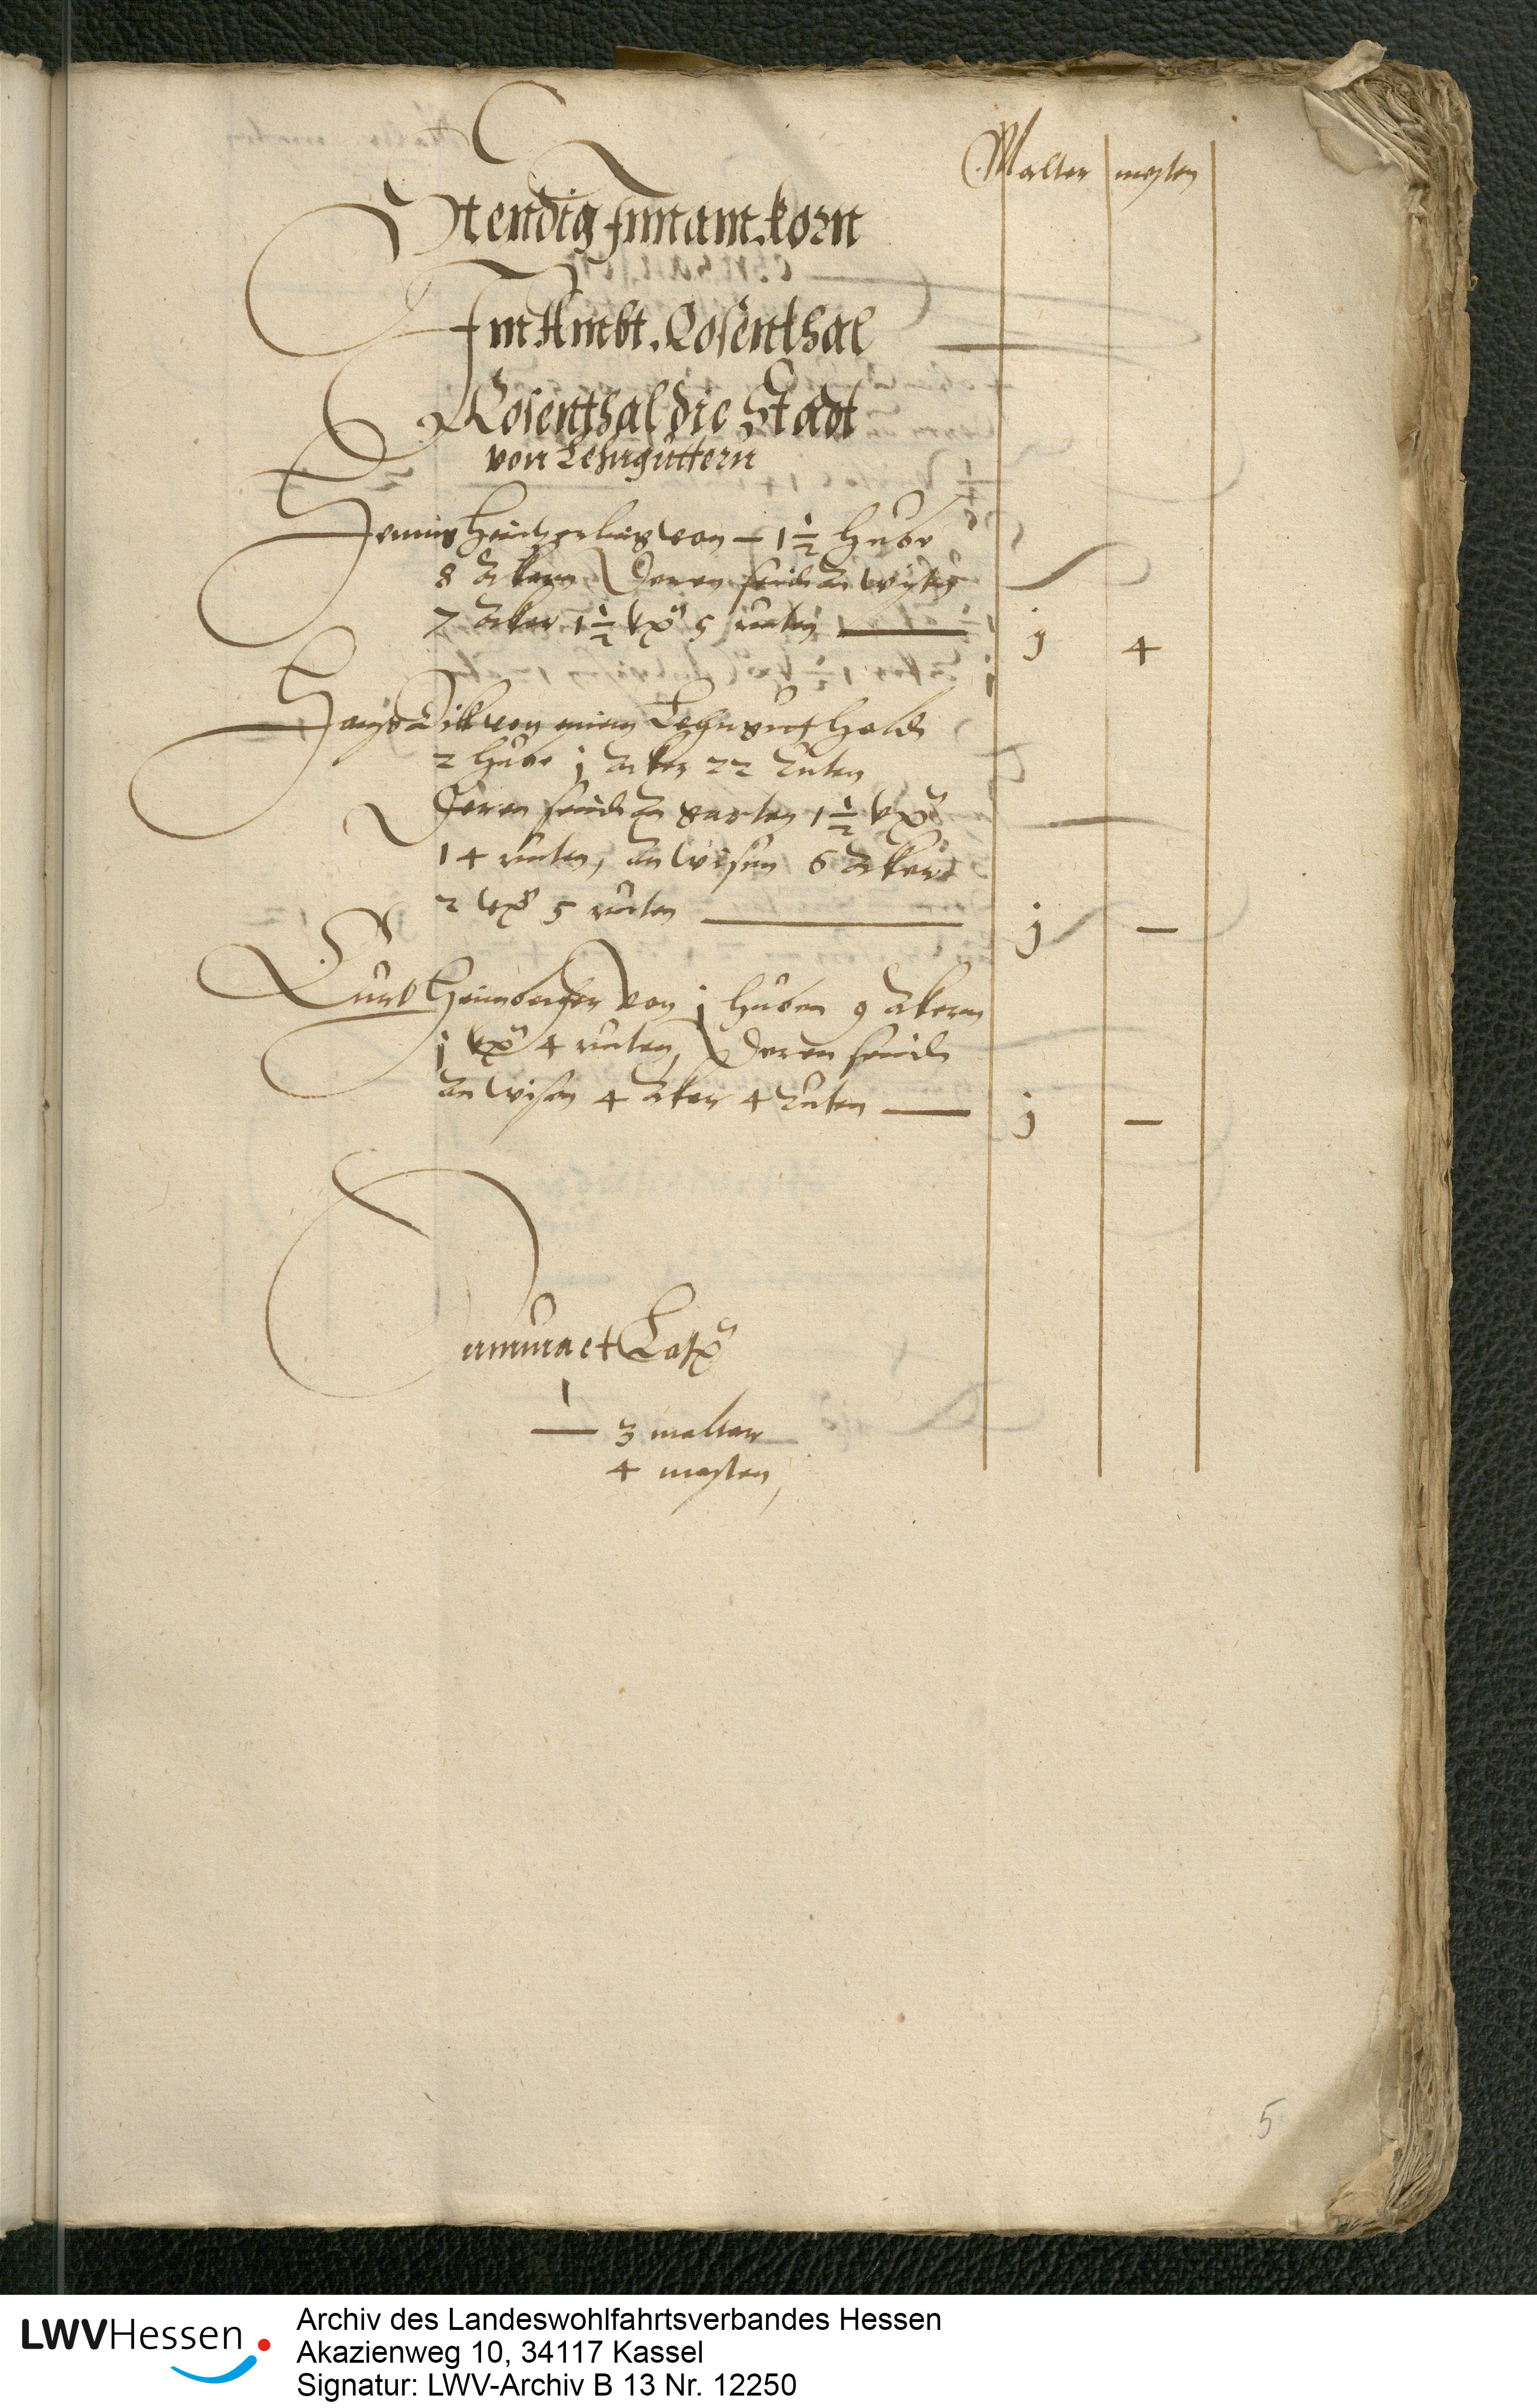 Malter mesten
Stendig Innam korn
Im Ambt Rosenthal
Rosenthal die Stadt
von Lehnguttern
von 1 1/2 Hube
8 Akern Deren seindt an wysen
7 Aker 1 1/2 5 ruten j 4
Hans von einem Lehngut helt
2 Hube j Aker 22 Ruten
Deren seindt garten 1 1/2
14 ruten, an wisen 6 Aker
2 5 ruten j —
Curt Heimberger von j Huben 9 Akern
j 4 ruten, Deren seindt
an wisen 4 Aker 4 Ruten j —
Summa et
3 malter
4 mesten,
5
LWVHessen
Archiv des Landeswohlfahrtsverbandes Hessen
Akazienweg 10, 34117 Kassel
Signatur: LWV-Archiv B 13 Nr. 12250